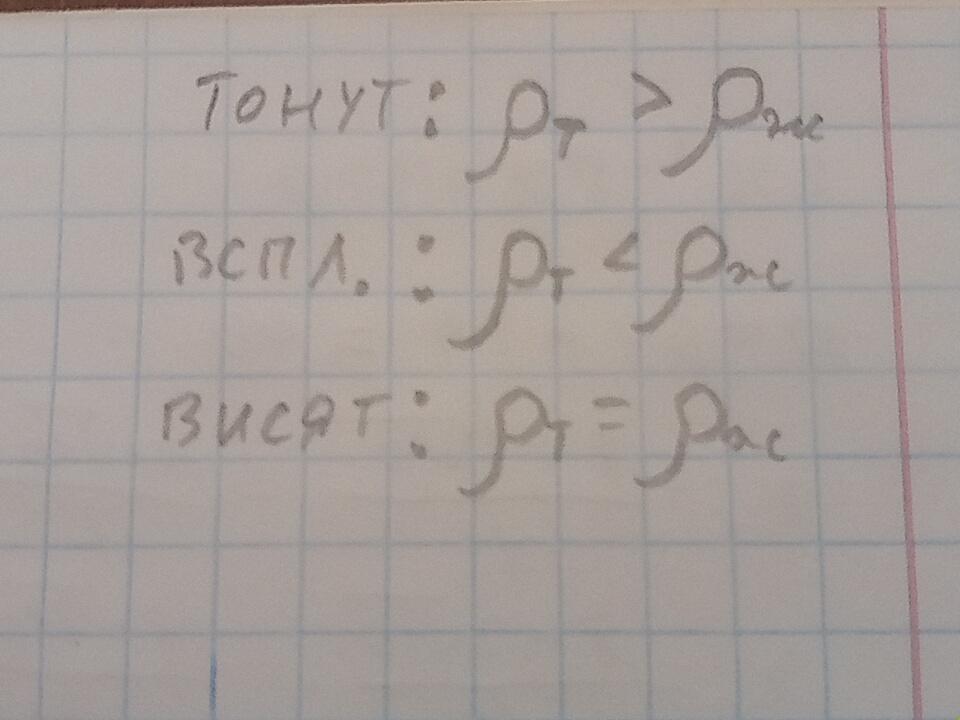 ТОНУТ: ρт > ρж
ВСПЛ.: ρт < ρж
ВИСЯТ: ρт = ρж